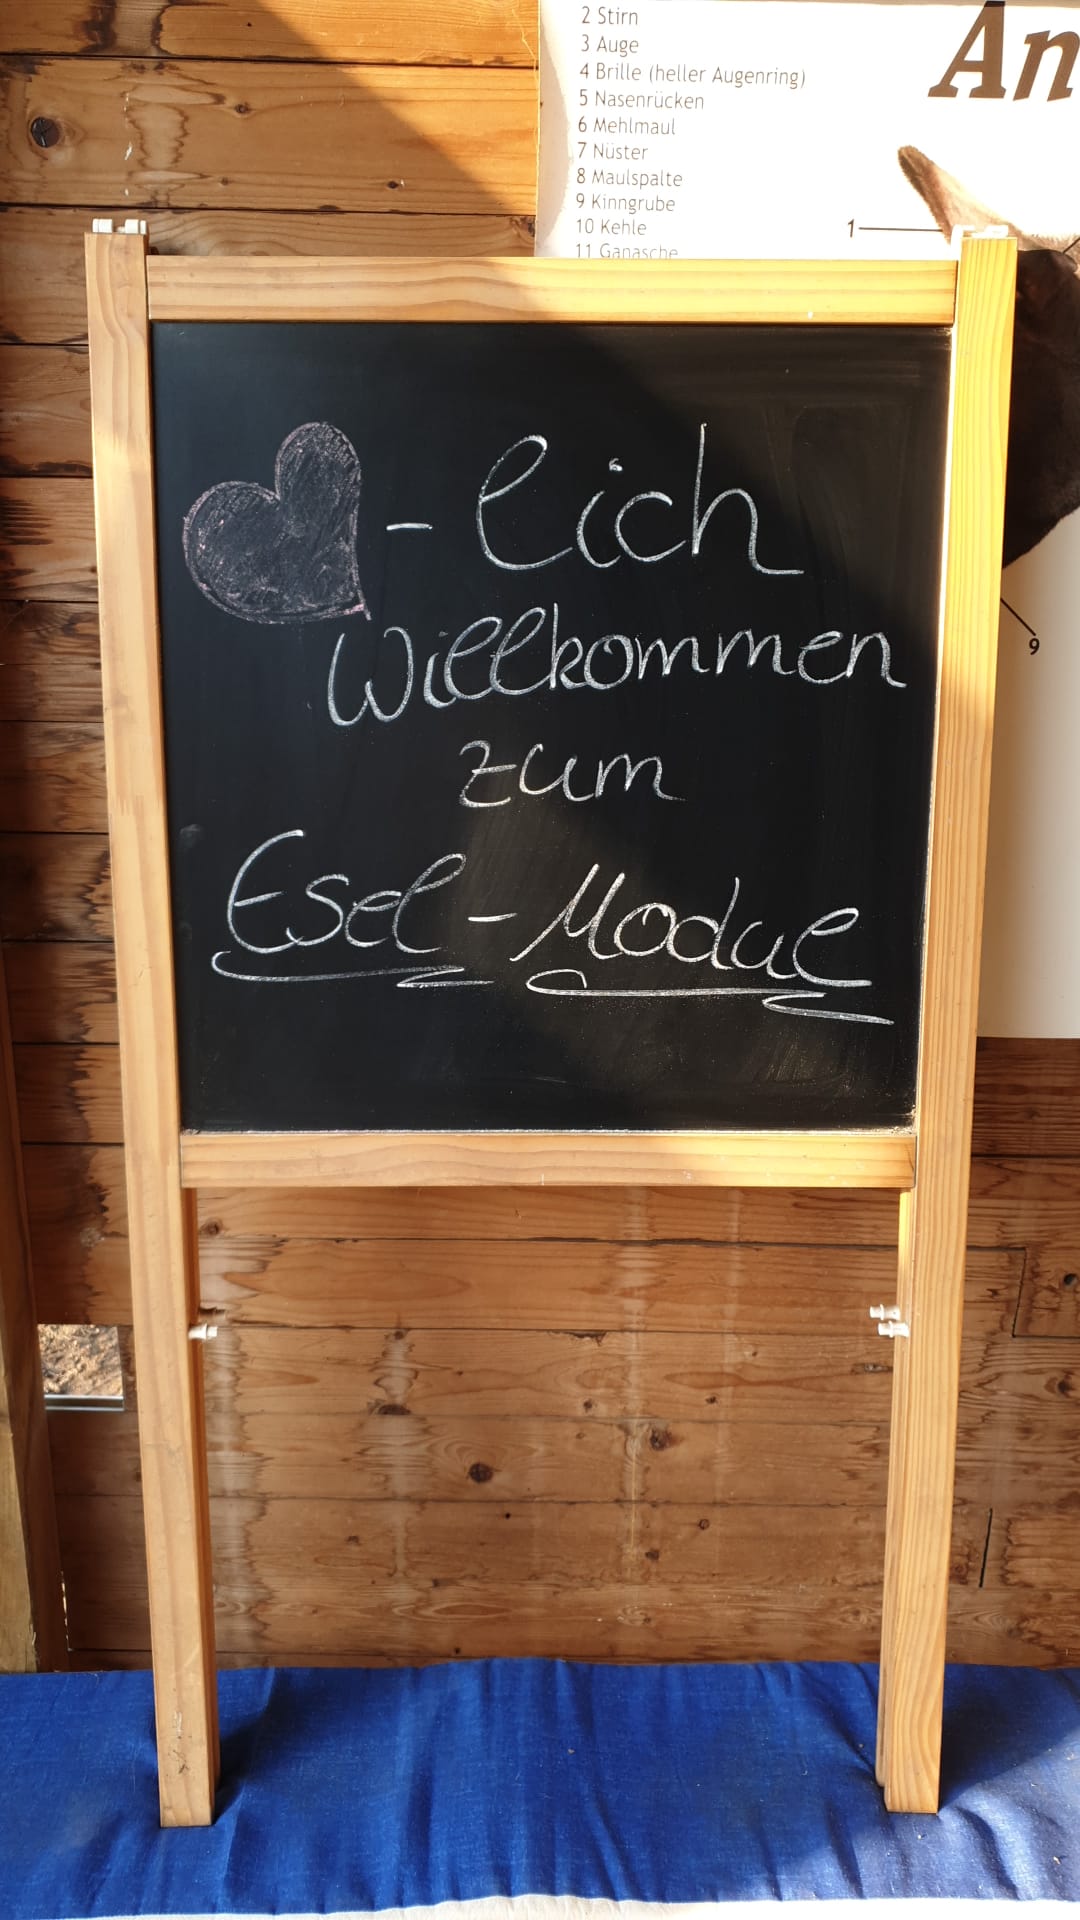 2 Stirn
3 Auge
4 Brille (heller Augenring)
5 Nasenrücken
6 Mehlmaul
7 Nüster
8 Maulspalte
9 Kinngrube
10 Kehle
11 Ganasche
An
1
9
- lich
Willkommen
zum
Esel - Modul